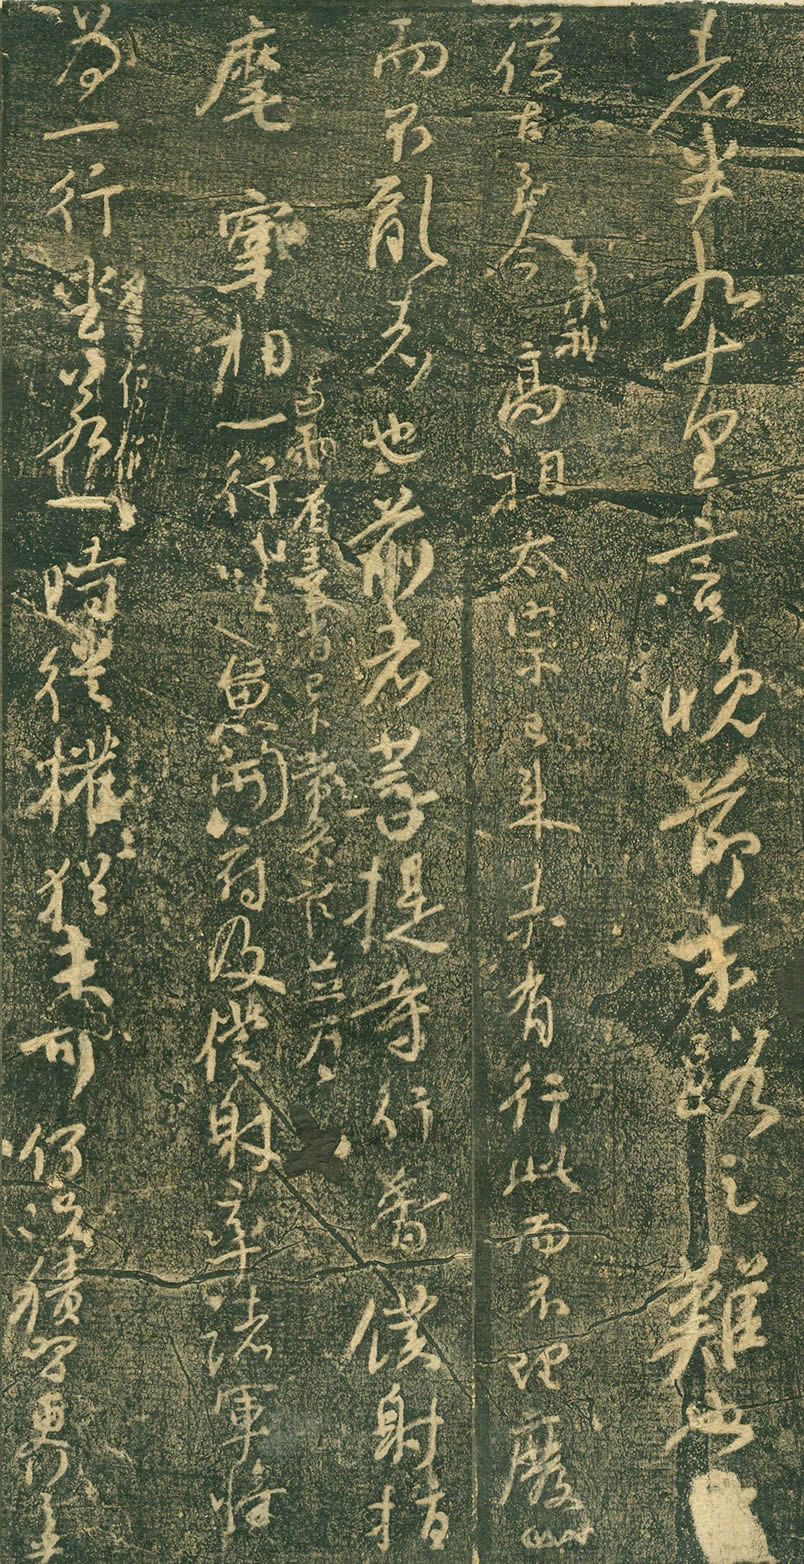 者半九十里言晚節末路之難也
從古至今暨我高祖太宗已來未有行此而不理廢此
而不亂者也前者菩提寺行香僕射指
麾宰相
與兩省臺省已下常參官並為
一行坐魚開府及僕射率諸軍將
為一行坐若一時從權猶未可何況積習更行之乎